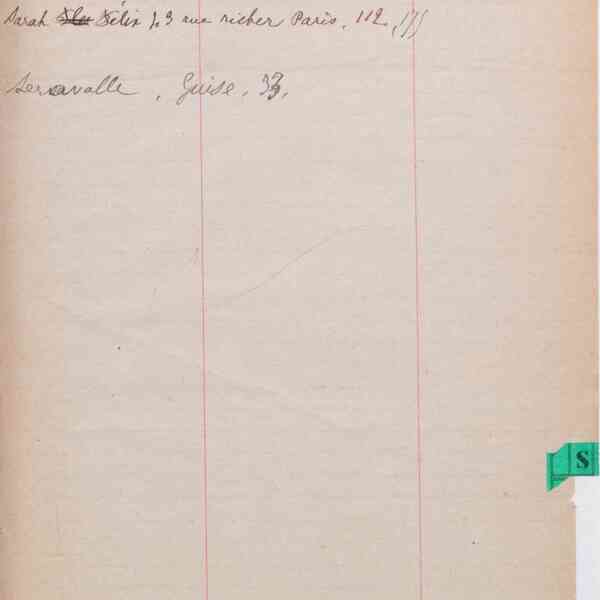 Sarah Félix 43 rue richer Paris, 112, 175
Seravalle, Guise, 33,
S